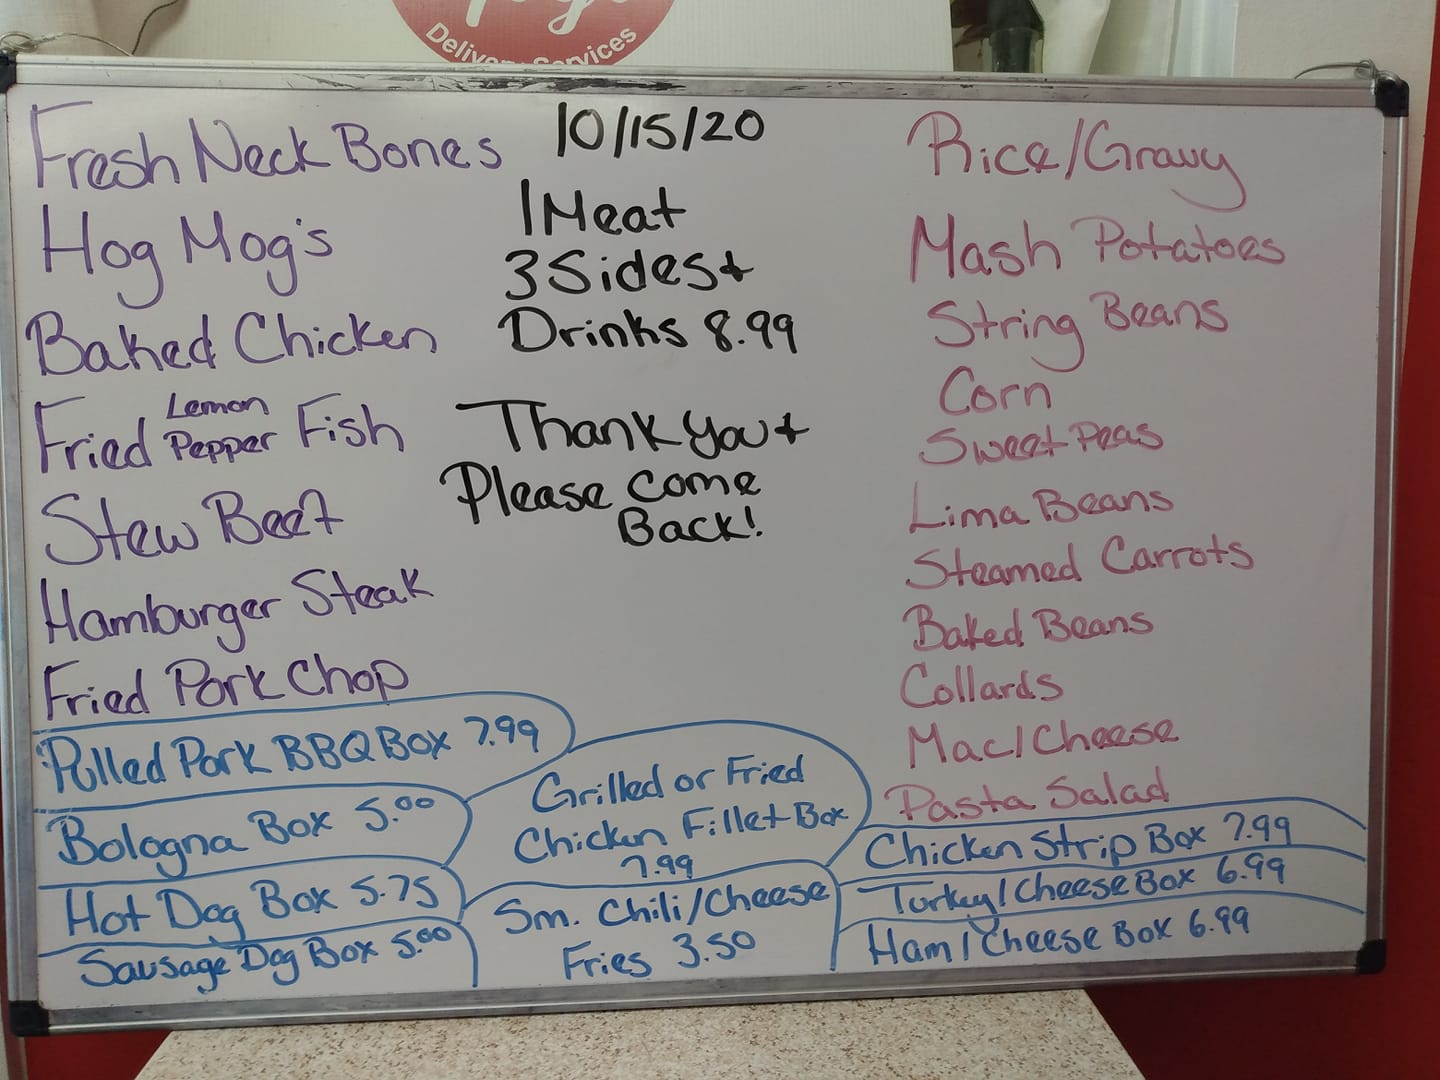 Delivery Services
Fresh Neck Bones
Hog Mog's
Baked Chicken
Fried Lemon Pepper Fish
Stew Beef
Hamburger Steak
Fried Pork Chop
10/15/20
1 Meat
3 Sides +
Drinks 8.99
Thank you +
Please come
Back!
Rice/Gravy
Mash Potatoes
String Beans
Corn
Sweet Peas
Lima Beans
Steamed Carrots
Baked Beans
Collards
Mac/Cheese
Pasta Salad
Pulled Pork BBQ Box 7.99
Bologna Box 5.00
Hot Dog Box 5.75
Sausage Dog Box 5.00
Grilled or Fried
Chicken Fillet Box
7.99
Sm. Chili/Cheese
Fries 3.50
Chicken Strip Box 7.99
Turkey/Cheese Box 6.99
Ham/Cheese Box 6.99